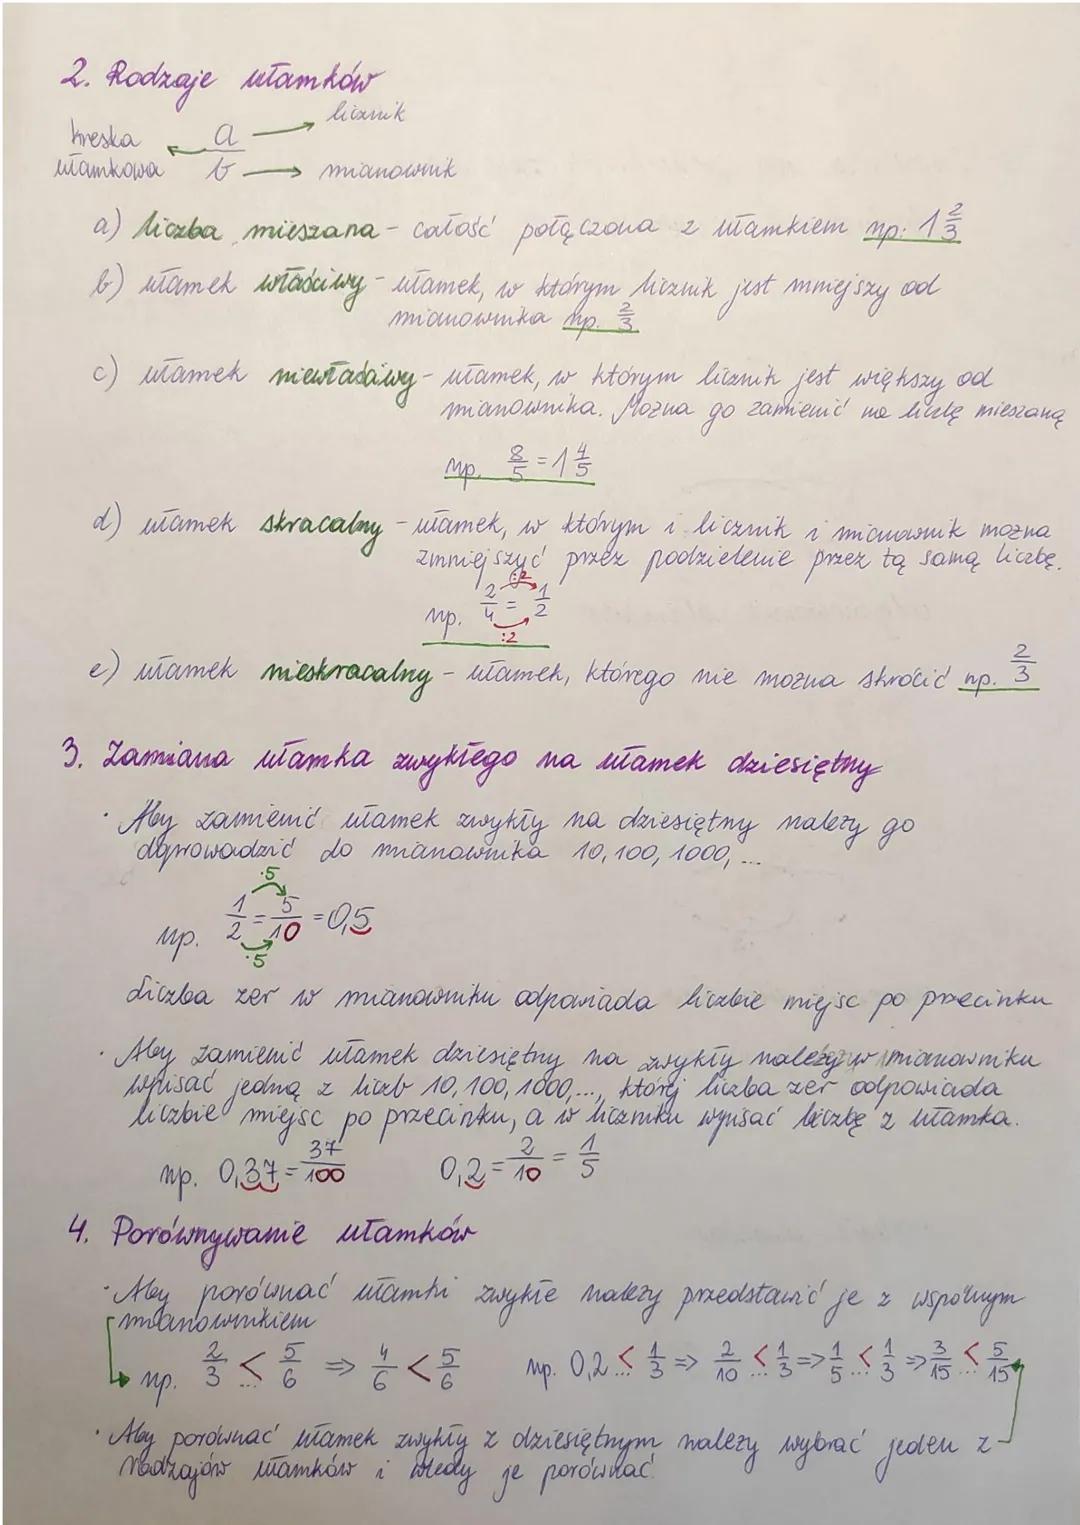 2. Rodzaje ułamków
kreska ułamkowa ← a/b → licznik
→ mianownik
a) liczba mieszana - całość połączona z ułamkiem np. 1 2/3
b) ułamek właściwy - ułamek, w którym licznik jest mniejszy od
mianownika np. 2/3
c) ułamek niewłaściwy - ułamek, w którym licznik jest większy od
mianownika. Można go zamienić na liczbę mieszaną
np. 8/5 = 1 4/5
d) ułamek skracalny - ułamek, w którym i licznik i mianownik można
zmniejszyć przez podzielenie przez tą samą liczbę.
:2
np. 2/4 = 1/2
:2
e) ułamek nieskracalny - ułamek, którego nie można skrócić np. 2/3
3. Zamiana ułamka zwykłego na ułamek dziesiętny
· Aby zamienić ułamek zwykły na dziesiętny należy go
doprowadzić do mianownika 10, 100, 1000, ...
·5
np. 1/2 = 5/10 = 0,5
·5
Liczba zer w mianowniku odpowiada liczbie miejsc po przecinku
· Aby zamienić ułamek dziesiętny na zwykły należy w mianowniku
wpisać jedną z liczb 10, 100, 1000,..., której liczba zer odpowiada
liczbie miejsc po przecinku, a w liczniku wpisać liczbę z ułamka.
np. 0,37 = 37/100 0,2 = 2/10 = 1/5
4. Porównywanie ułamków
· Aby porównać ułamki zwykłe należy przedstawić je z wspólnym
mianownikiem
np. 2/3 ...<... 5/6 => 4/6 < 5/6 np. 0,2 ...<... 1/3 => 2/10 ...<... 1/3 => 1/5 ...<... 1/3 => 3/15 ...<... 5/15
· Aby porównać ułamek zwykły z dziesiętnym należy wybrać jeden z
rodzajów ułamków i wtedy je porównać